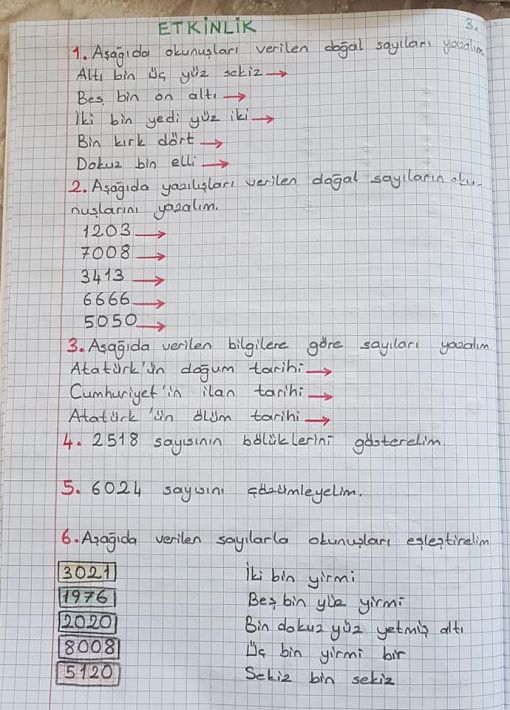 ETKİNLİK
3.
1. Aşağıda okunuşları verilen doğal sayıları yazalım
Altı bin üç yüz sekiz →
Beş bin on altı →
İki bin yedi yüz iki →
Bin kırk dört →
Dokuz bin elli →
2. Aşağıda yazılışları verilen doğal sayıların oku-
nuşlarını yazalım.
1203 →
7008 →
3413 →
6666 →
5050 →
3. Aşağıda verilen bilgilere göre sayıları yazalım
Atatürk'ün doğum tarihi →
Cumhuriyet'in ilan tarihi →
Atatürk'ün ölüm tarihi →
4. 2518 sayısının bölüklerini gösterelim.
5. 6024 sayısını çözümleyelim.
6. Aşağıda verilen sayılarla okunuşları eşleştirelim
3021 İki bin yirmi
1976 Beş bin yüz yirmi
2020 Bin dokuz yüz yetmiş altı
8008 Üç bin yirmi bir
5120 Sekiz bin sekiz